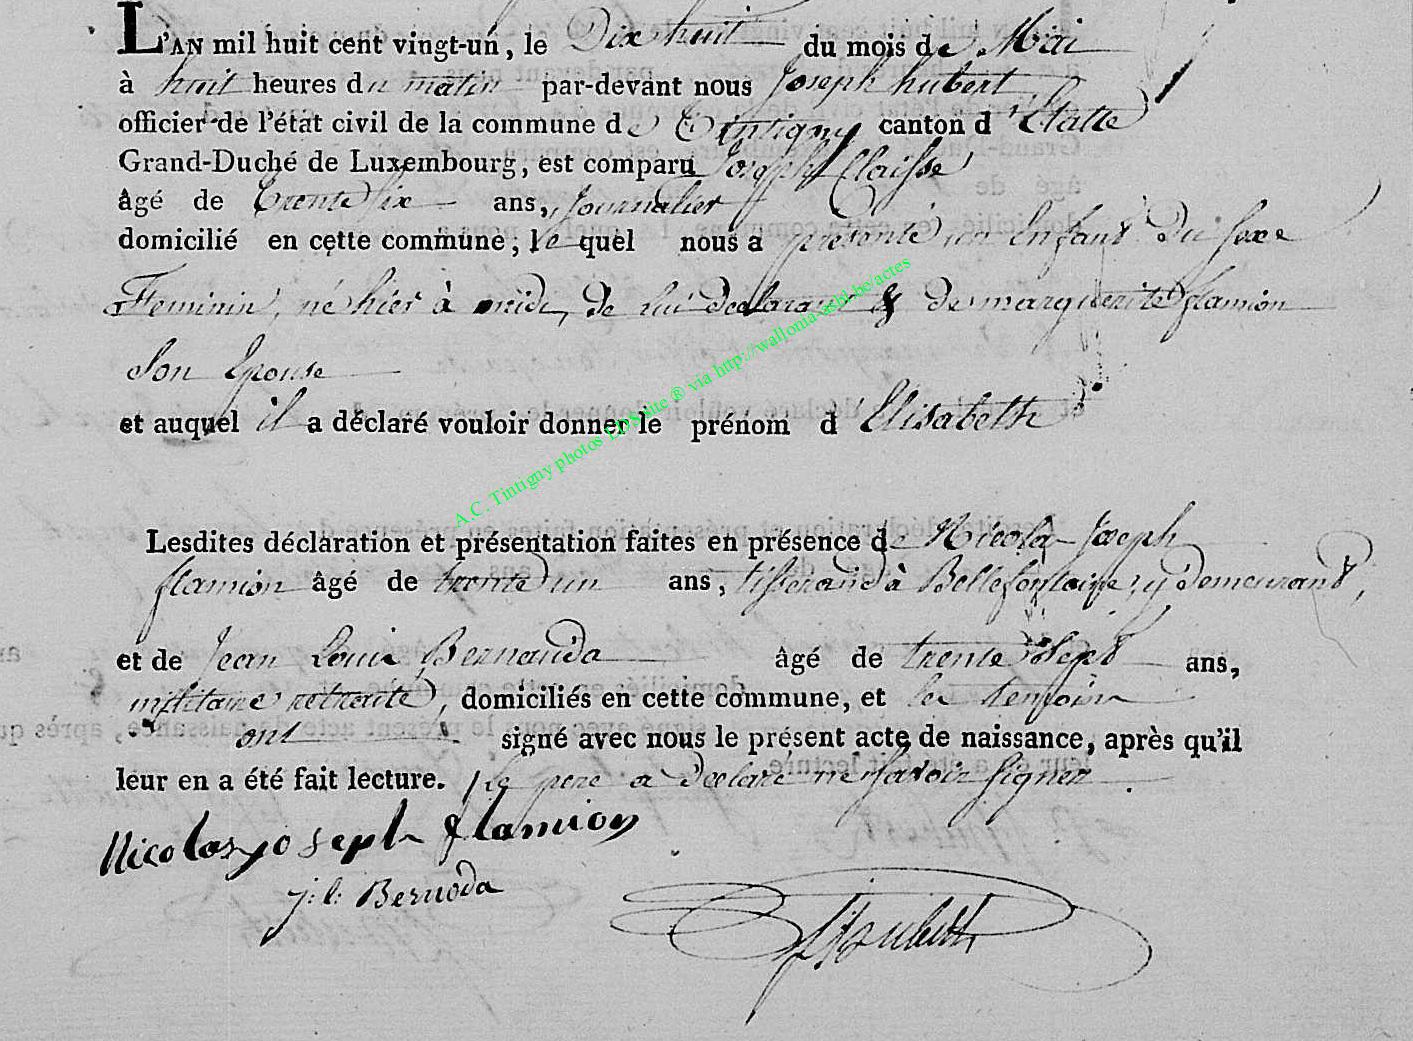 L'AN mil huit cent vingt-un, le Dix huit du mois de Mai
à huit heures du matin par-devant nous Joseph hubert
officier de l'état civil de la commune de Tintigny canton d'Etalle
Grand-Duché de Luxembourg, est comparu Joseph Claisse
âgé de trente six ans, Journalier
domicilié en cette commune, lequel nous a présenté un Enfant du sexe
Feminin, né hier à midi, de lui declarant & de marguerite flamion
Son Epouse
et auquel il a déclaré vouloir donner le prénom d'Elisabeth
Lesdites déclaration et présentation faites en présence de Nicola Joseph
flamion âgé de trente un ans, tisserand à Bellefontaine, y demeurant,
et de Jean Louis Bernauda âgé de trente Sept ans,
militaire retraité, domiciliés en cette commune, et les temoins
ont signé avec nous le présent acte de naissance, après qu'il
leur en a été fait lecture. Le pere a declaré ne savoir signer.
Nicolas joseph flamion
j: l: Bernoda
JHubert
A.C. Tintigny photos LDS site ® via http://wallonia-asbl.be/actes